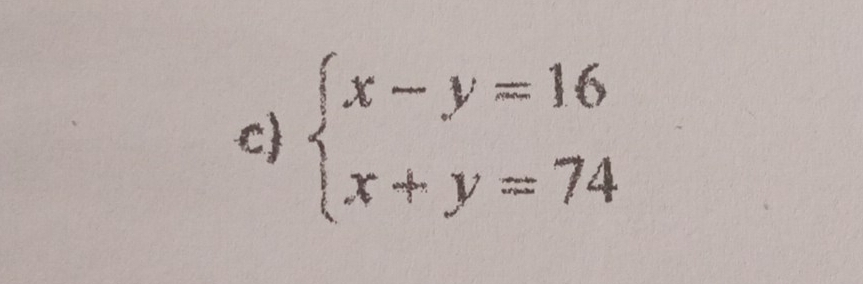 c) { x − y = 16
x + y = 74